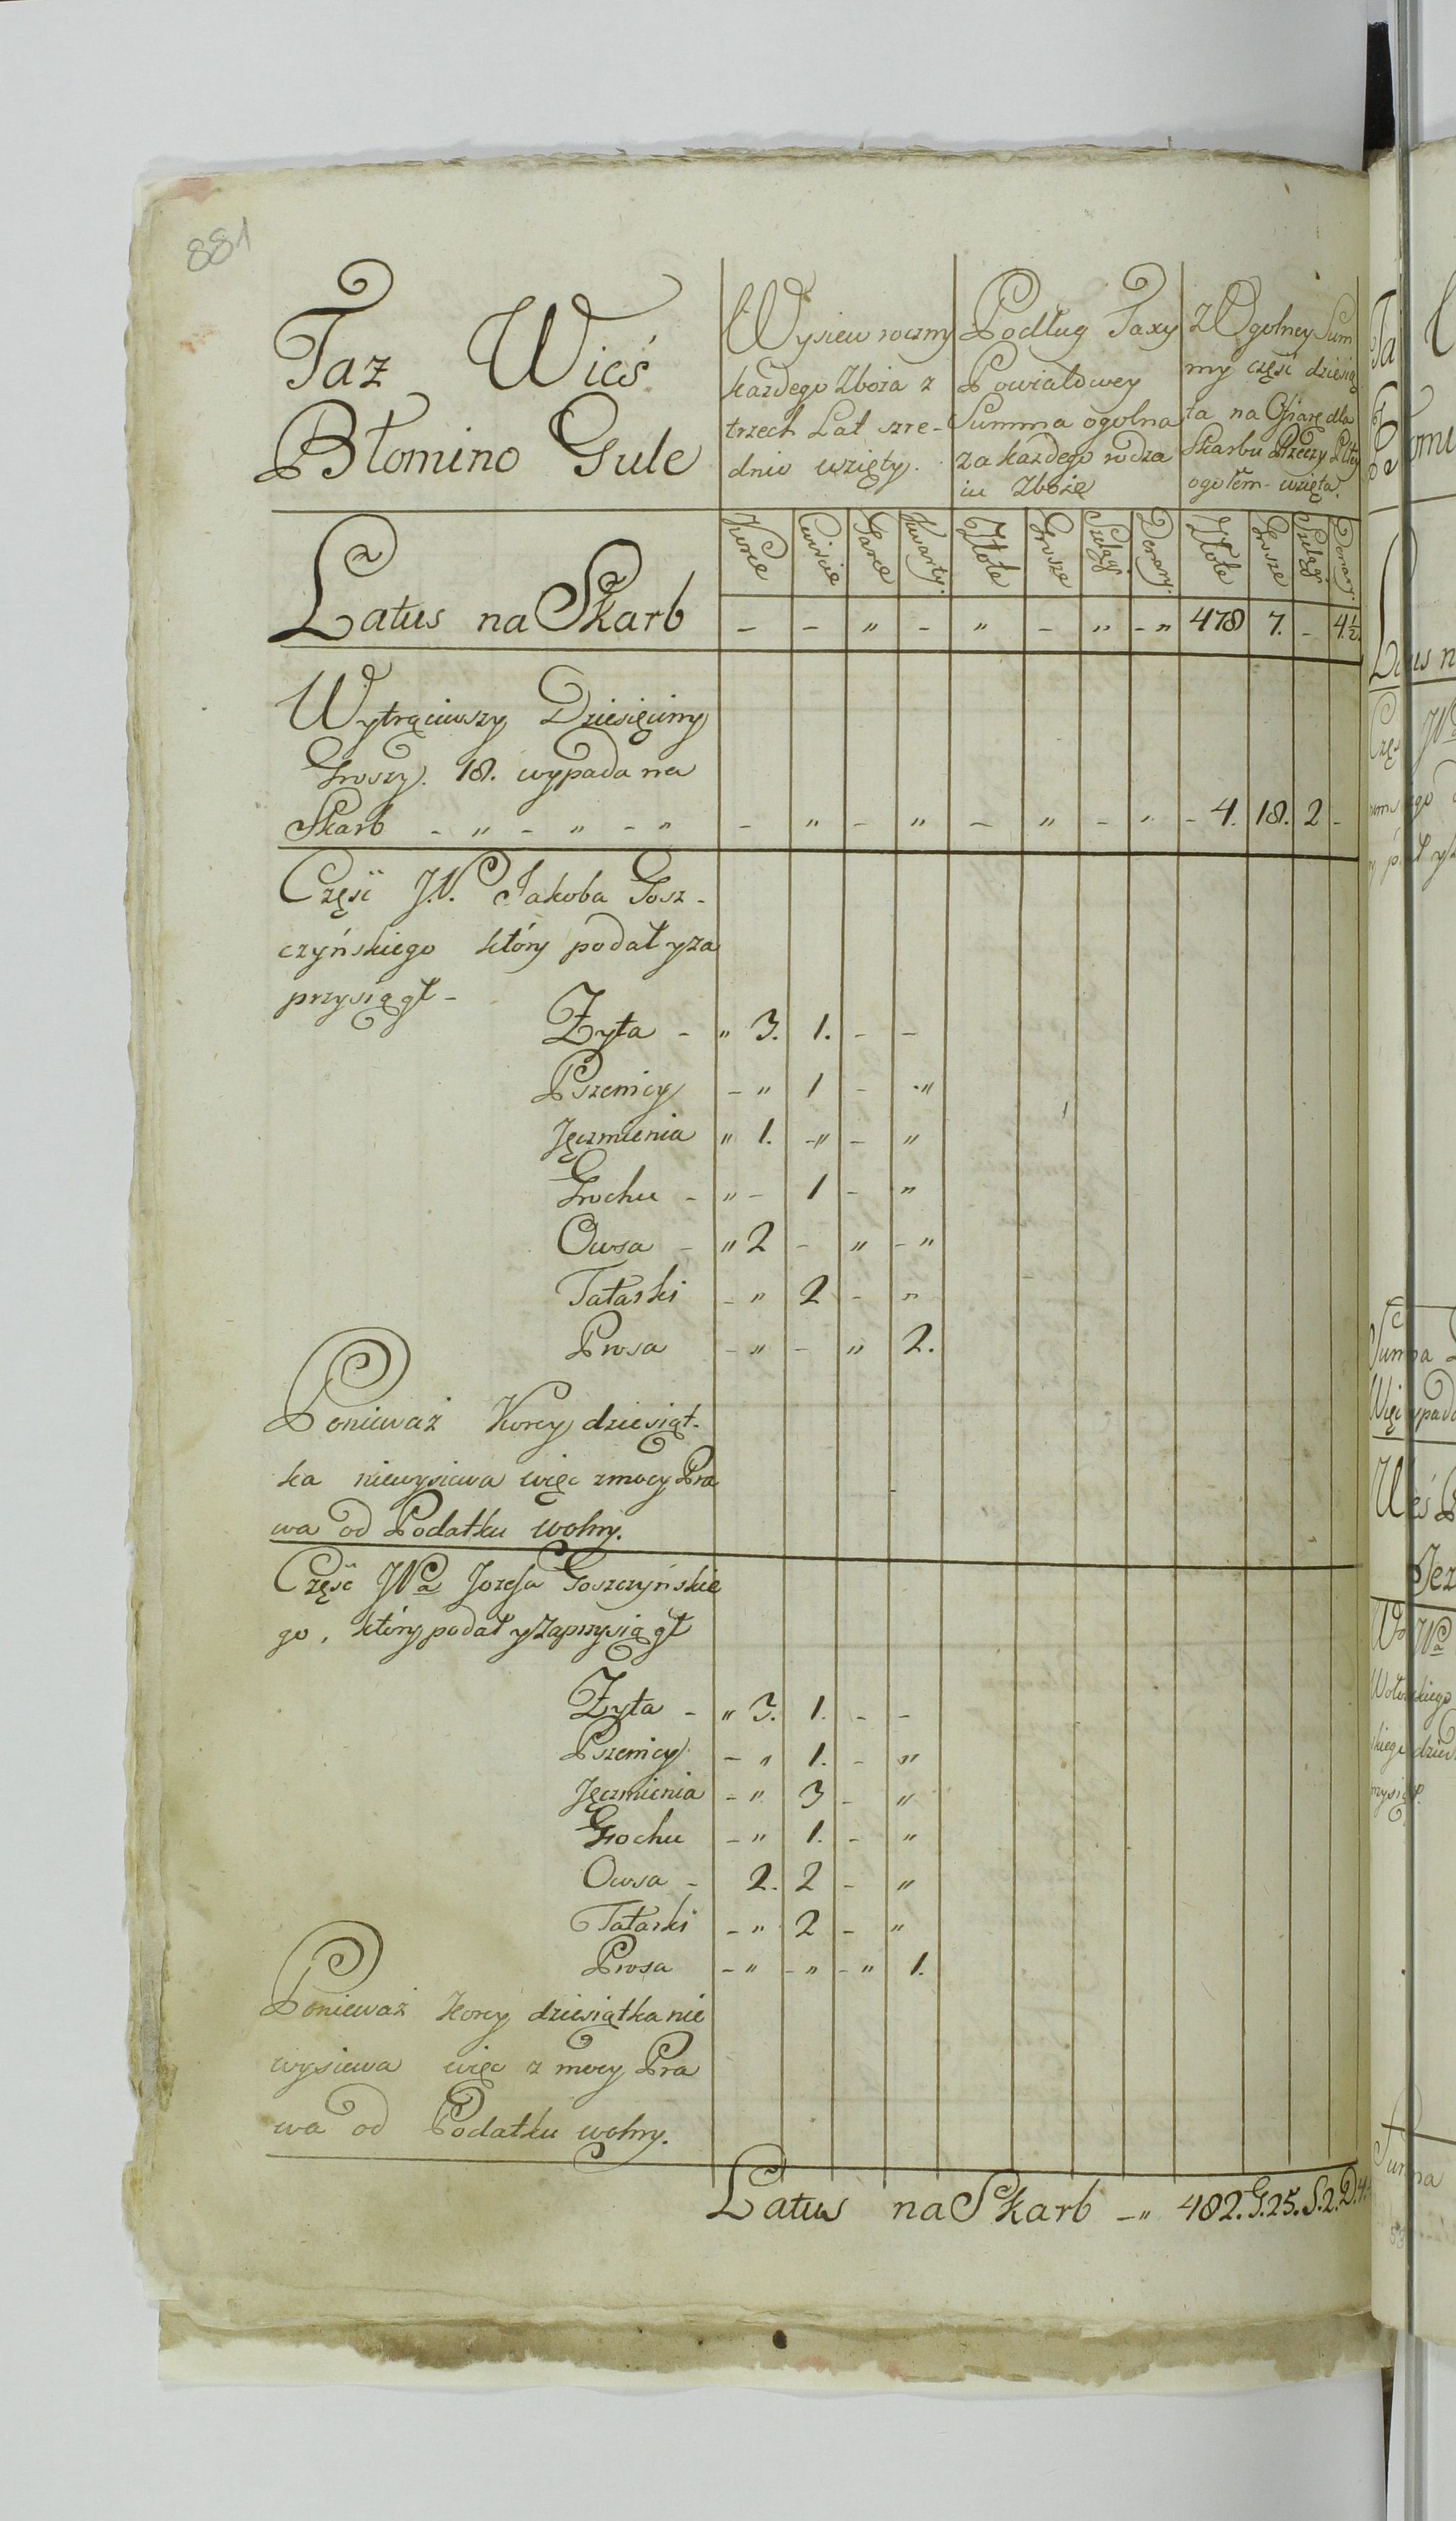 881
Taz Wieś
Błomino Gule
Wysiew roczny
każdego Zboża z
trzech Lat szre-
dnio wzięty.
Podług Taxy
Powiatowey
Summa ogolna
za każdego rodza
iu Zboże
Z Ogolney Sum
my część dziesią
ta na Ofiarę dla
Skarbu Rzeczy Pltey
ogołem wzięta.
Korce Cwircie Garce Kwarty. Złote Grosze Szelągi Denary. Złote Grosze Szelągi Denary.
Latus na Skarb - - " - " - " - " 478 7. - 4½.
Wytrąciwszy Dziesięciny
Groszy. 18. wypada na
Skarb - " - " - " - " - " - " - " - 4. 18. 2 -
Częśc J.P. Jakoba Gosz-
czyńskiego który podał y za
przysiągł -
Żyta - " 3. 1. - -
Pszenicy - " 1 - "
Jęczmienia " 1. - " - "
Grochu - " - 1 - "
Owsa - " 2 - " - "
Tatarki - " 2 - "
Prosa - " - " 2.
Ponieważ Korcy dziesiąt-
ka niewysiewa więc z mocy Pra
wa od Podatku wolny.
Częśc JPa Jozefa Goszczyńskie
go, który podał y zaprzysiągł
Żyta - " 3. 1. - -
Pszenicy - " 1. - "
Jęczmienia - " 3 - "
Grochu - " 1. - "
Owsa - 2. 2 - "
Tatarki - " 2 - "
Prosa - " - " - " 1.
Ponieważ Korcy dziesiątka nie
wysiewa więc z mocy Pra
wa od Podatku wolny.
Latus na Skarb - " 482. G. 25. S. 2. D.